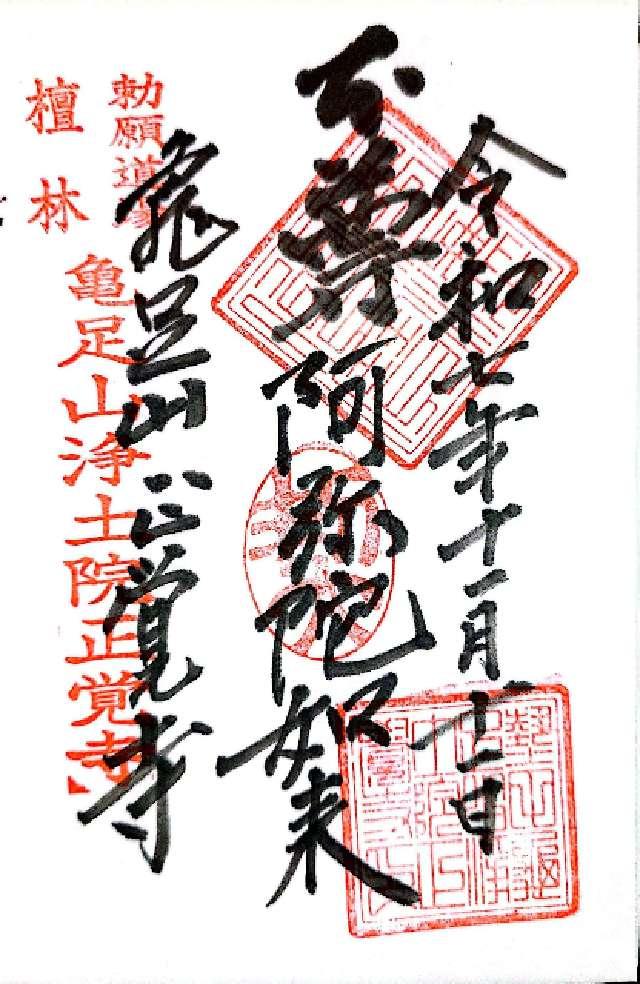 令和七年十一月十一日
本尊
阿弥陀如来
亀足山正覚寺
勅願道場
檀林
亀足山浄土院正覚寺